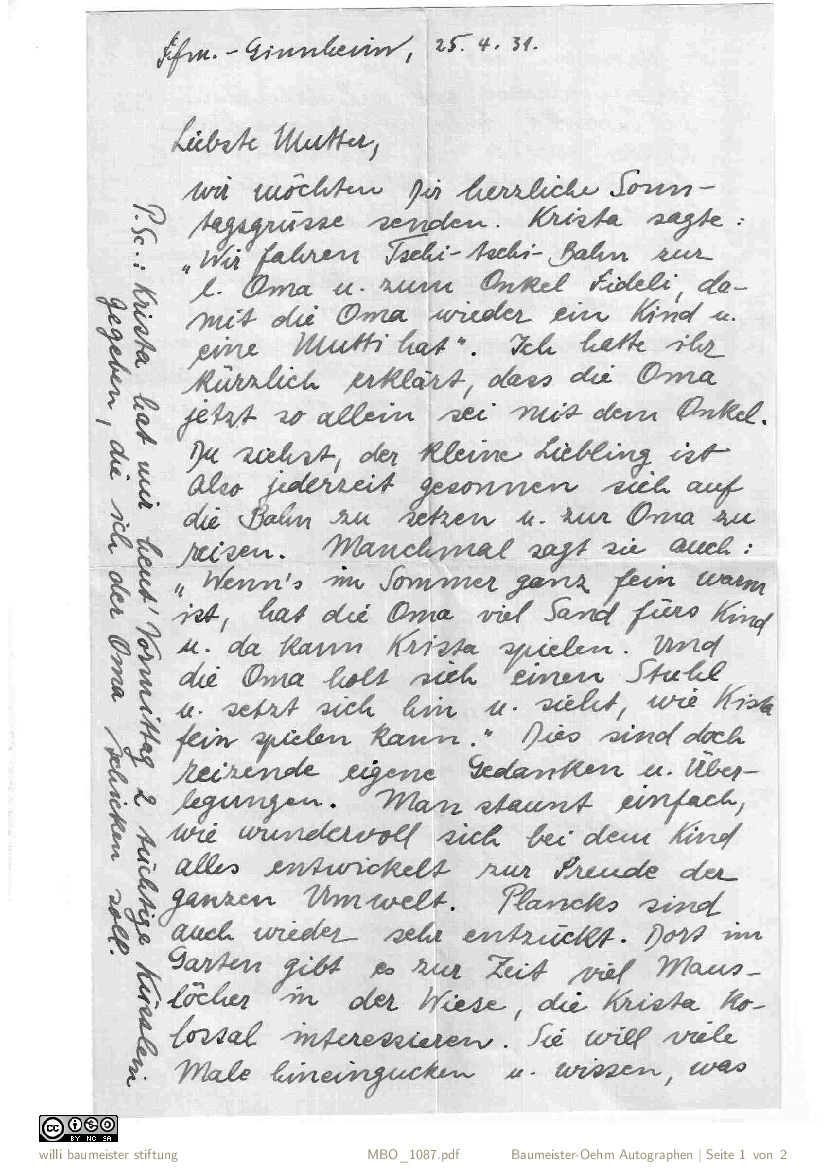 Ffm. - Ginnheim, 25. 4. 31.
Liebste Mutter,
wir möchten Dir herzliche Sonn-
tagsgrüsse senden. Krista sagte:
„Wir fahren Tschi-tschi-Bahn zur
l. Oma u. zum Onkel Fideli, da-
mit die Oma wieder ein Kind u.
eine Mutti hat". Ich hatte ihr
kürzlich erklärt, dass die Oma
jetzt so allein sei mit dem Onkel.
Du siehst, der kleine Liebling ist
also jederzeit gesonnen sich auf
die Bahn zu setzen u. zur Oma zu
reisen. Manchmal sagt sie auch:
„Wenn's im Sommer ganz fein warm
ist, hat die Oma viel Sand fürs Kind
u. da kann Krista spielen. Und
die Oma holt sich einen Stuhl
u. setzt sich hin u. sieht, wie Krista
fein spielen kann." Dies sind doch
reizende eigene Gedanken u. Über-
legungen. Man staunt einfach,
wie wundervoll sich bei dem Kind
alles entwickelt zur Freude der
ganzen Umwelt. Plancks sind
auch wieder sehr entzückt. Dort im
Garten gibt es zur Zeit viel Maus-
löcher in der Wiese, die Krista ko-
lossal interessieren. Sie will viele
Male hineingucken u. wissen, was
P.Sc.: Krista hat mir heut' Vormittag 2 tüchtige Küsslein
gegeben, die ich der Oma schicken soll.
CC BY NC SA
willi baumeister stiftung
MBO_1087.pdf
Baumeister-Oehm Autographen | Seite 1 von 2